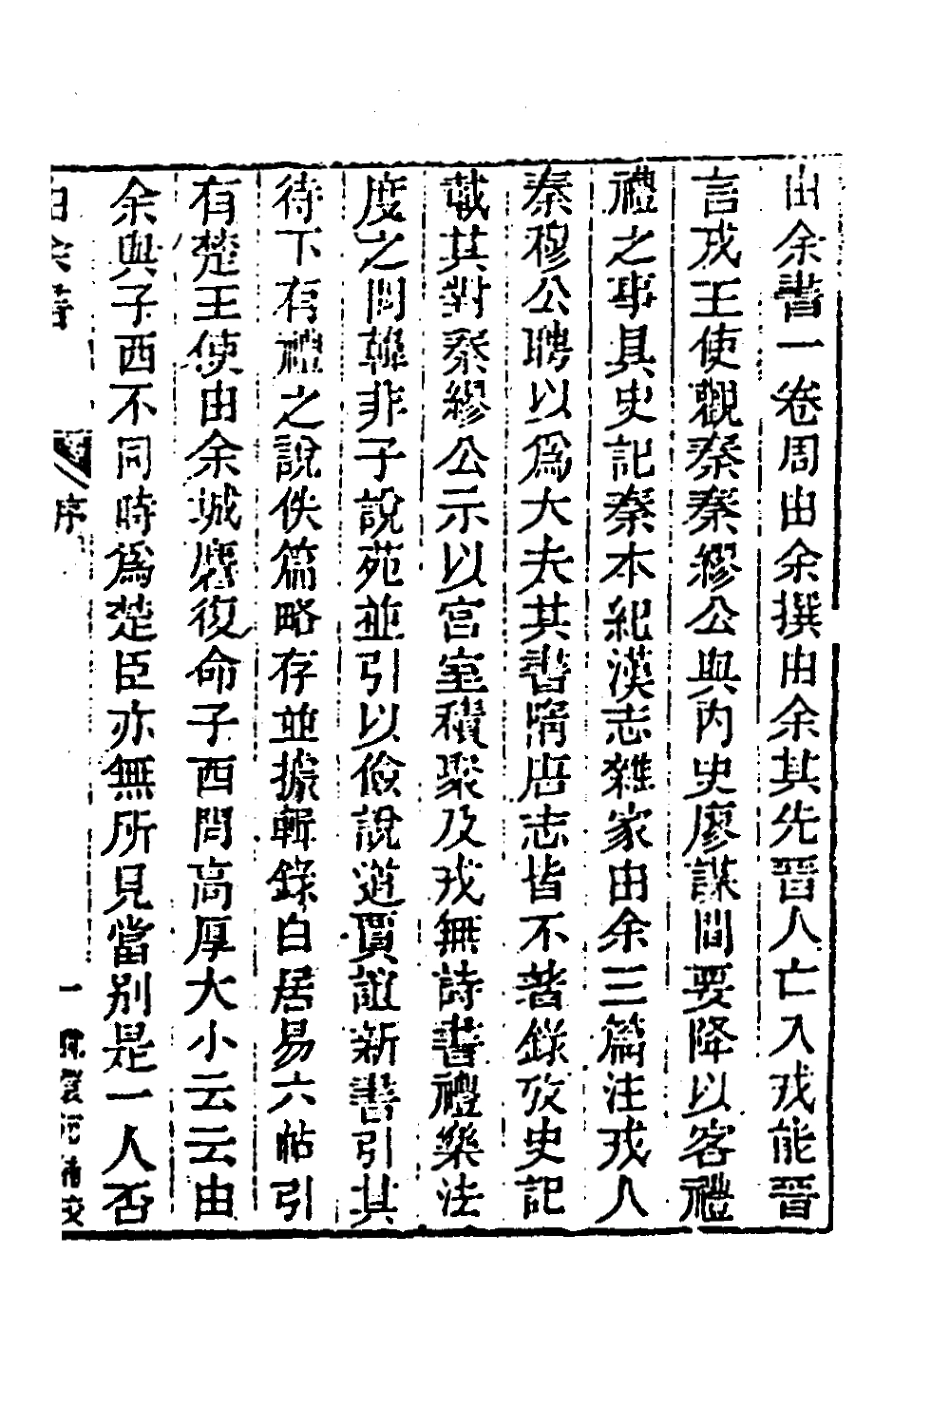 由余書一卷周由余撰由余其先晋人亡入戎能晋
言戎王使觀秦秦繆公與內史廖謀間要降以客禮
禮之事具史記秦本紀漢志雜家由余三篇注戎人
秦穆公聘以爲大夫其書隋唐志皆不著錄攷史記
載其對秦繆公示以宮室積聚及戎無詩書禮樂法
度之問韓非子說苑並引以儉說道賈誼新書引其
待下有禮之說佚篇略存並據輯錄白居易六帖引
有楚王使由余城麇復命子西問高厚大小云云由
余與子西不同時爲楚臣亦無所見當別是一人否
由余書 序 一